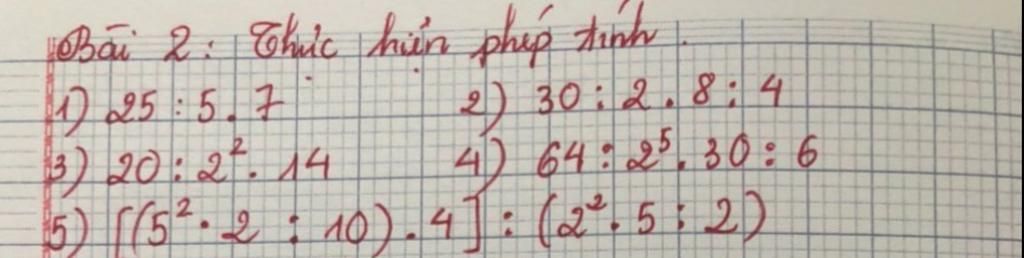 Bài 2: Thực hiện phép tính.
1) 25 : 5 . 7 2) 30 : 2 . 8 : 4
3) 20 : 2² . 14 4) 64 : 2⁵ . 30 : 6
5) [(5² . 2 : 10) . 4] : (2² . 5 : 2)